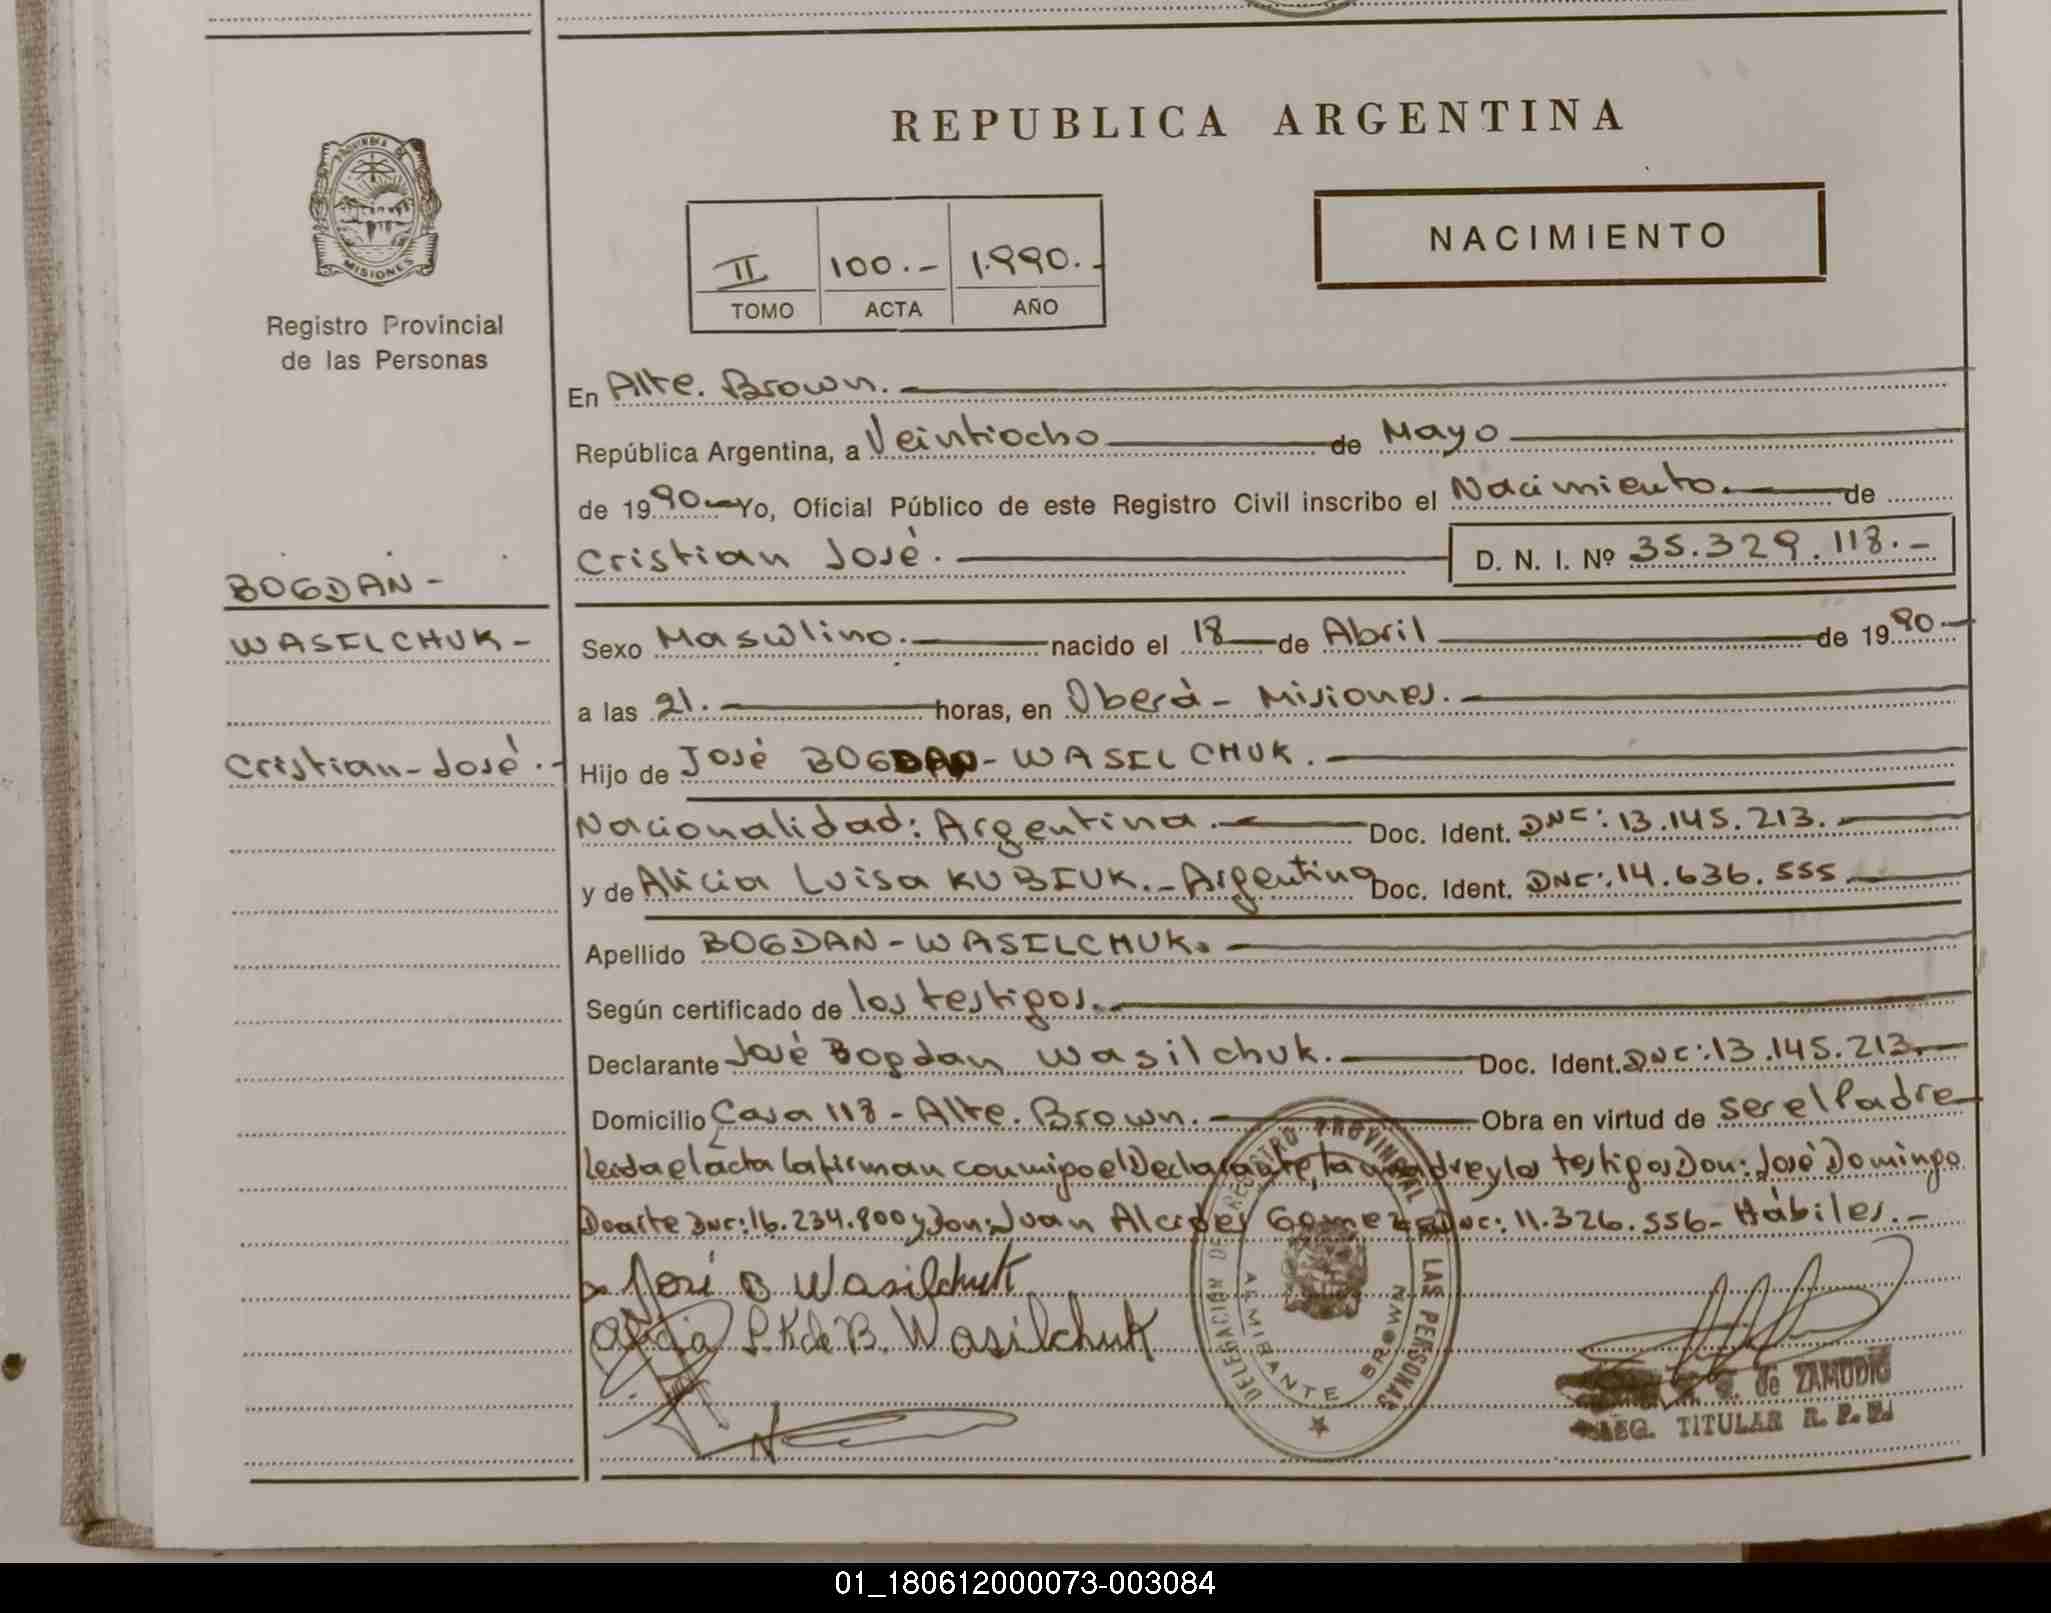 REPUBLICA ARGENTINA
PROVINCIA DE
MISIONES
Registro Provincial
de las Personas
II 100.- 1.990.-
TOMO ACTA AÑO
NACIMIENTO
En Alte. Brown.
República Argentina, a Veintiocho de Mayo
de 1990 Yo, Oficial Público de este Registro Civil inscribo el Nacimiento. de
Cristian José. D. N. I. Nº 35.329.118.-
BOGDAN-
WASILCHUK-
Cristian-José.-
Sexo Masculino. nacido el 18 de Abril de 1990
a las 21. horas, en Oberá - Misiones.
Hijo de José BOGDAN-WASILCHUK.
Nacionalidad: Argentina. Doc. Ident. DNI: 13.145.213.
y de Alicia Luisa KUBIUK.- Argentina Doc. Ident. DNI: 14.636.555
Apellido BOGDAN-WASILCHUK.
Según certificado de los testigos.
Declarante José Bogdan Wasilchuk. Doc. Ident. DNI: 13.145.213.
Domicilio Casa 118 - Alte. Brown. Obra en virtud de ser el Padre
Leida el acta la firman conmigo el Declarante, la madre y los testigos Don: José Domingo
Doarte DNI: 16.234.800 y Don: Juan Alcides Gomez DNI: 11.326.556- Hábiles.-
José B Wasilchuk
Alicia L. K de B. Wasilchuk
DELEGACIÓN DE REGISTRO PROVINCIAL DE LAS PERSONAS
ALMIRANTE BROWN
G. de ZAMUDIO
TITULAR R. P. P.
01_180612000073-003084